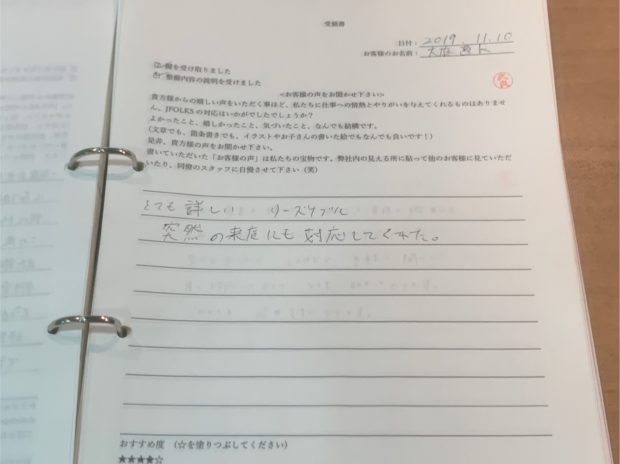 受領書
日付： 2019. 11. 10
お客様のお名前：
①鍵を受け取りました
②整備内容の説明を受けました
＜お客様の声をお聞かせ下さい＞
貴方様からの嬉しい声をいただく事ほど、私たちに仕事への情熱とやりがいを与えてくれるものはありませ
ん。JFOLKSの対応はいかがでしたでしょうか？
よかったこと、嬉しかったこと、気づいたこと、なんでも結構です。
(文章でも、箇条書きでも、イラストやお子さんの書いた絵でもなんでも良いです！)
是非、貴方様の声をお聞かせ下さい。
書いていただいた「お客様の声」は私たちの宝物です。弊社内の見える所に貼って他のお客様に見ていただ
いたり、同僚のスタッフに自慢させて下さい（笑）
とても 詳しい リーズナブル
突然の来店にも対応してくれた。
おすすめ度 （☆を塗りつぶしてください）
★★★★☆